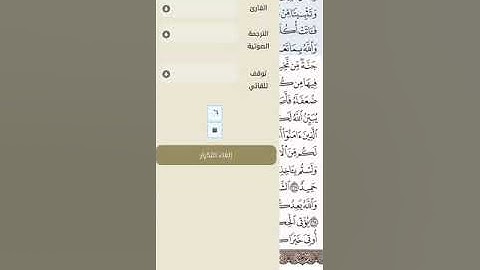 القارئ
الترجمة
الصوتية
توقف
تلقائي
إلغاء التكرار
وَتَثْبِيتًا مِّنْ
فَـَٔاتَتْ أُكُ
وَٱللَّهُ بِمَا تَعْ
جَنَّةٌ مِّن نَّخِ
فِيهَا مِن كُ
ضُعَفَآءُ فَأَصَ
يُبَيِّنُ ٱللَّهُ لَكُ
ٱلَّذِينَ ءَامَنُوٓا۟ أَ
لَكُم مِّنَ ٱلْأَ
وَلَسْتُم بِـَٔاخِذِ
حَمِيدٌ ٱلشَّ
وَٱللَّهُ يَعِدُكُ
يُؤْتِى ٱلْحِ
أُوتِىَ خَيْرًا كَ